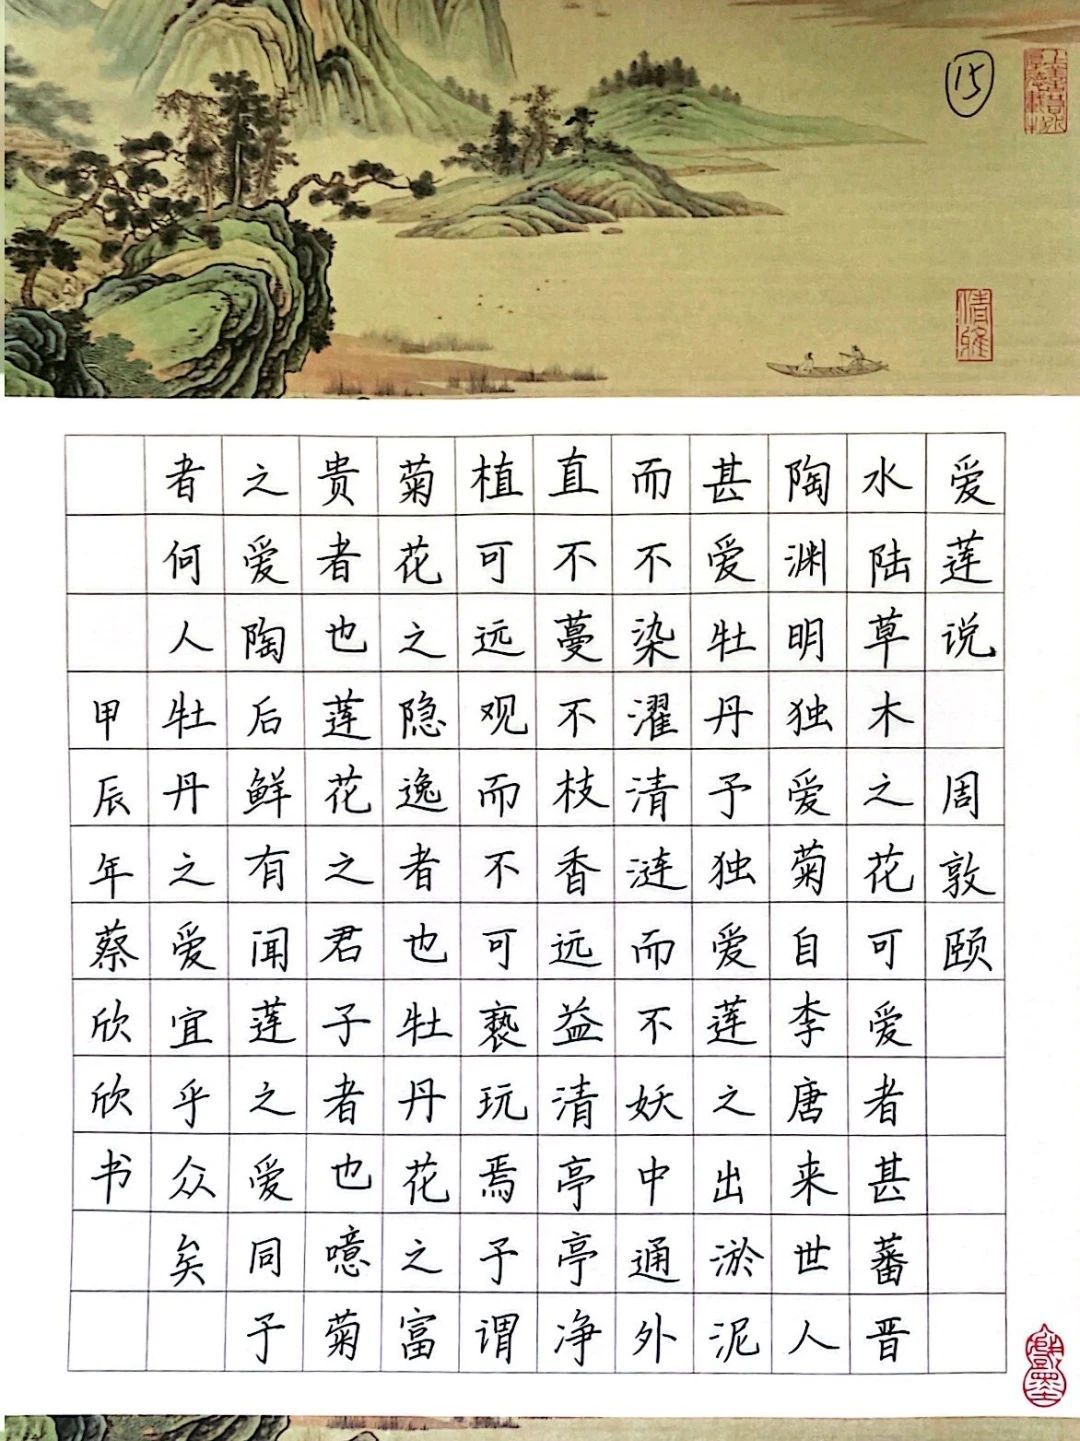 15
清雅
爱莲说 周敦颐
水陆草木之花可爱者甚蕃晋
陶渊明独爱菊自李唐来世人
甚爱牡丹予独爱莲之出淤泥
而不染濯清涟而不妖中通外
直不蔓不枝香远益清亭亭净
植可远观而不可亵玩焉予谓
菊花之隐逸者也牡丹花之富
贵者也莲花之君子者也噫菊
之爱陶后鲜有闻莲之爱同予
者何人牡丹之爱宜乎众矣
甲辰年蔡欣欣书